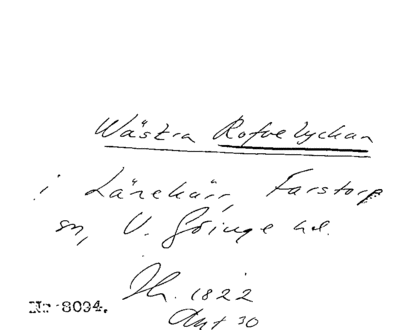 Wästra Rofvelyckan
i Länekärr, Farstorp
sn, V. Göinge hd.
Th. 1822
Akt 30
Nr 8094.